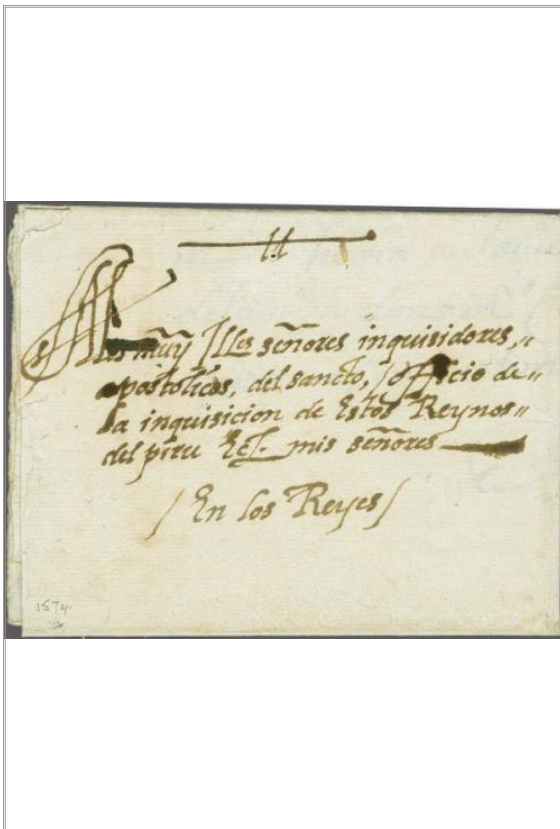 A los muy Illes señores inquisidores,
apostolicos, del sancto, officio de
la inquisicion de Estos Reynos
del piru mis señores
/ En los Reyes /
1574